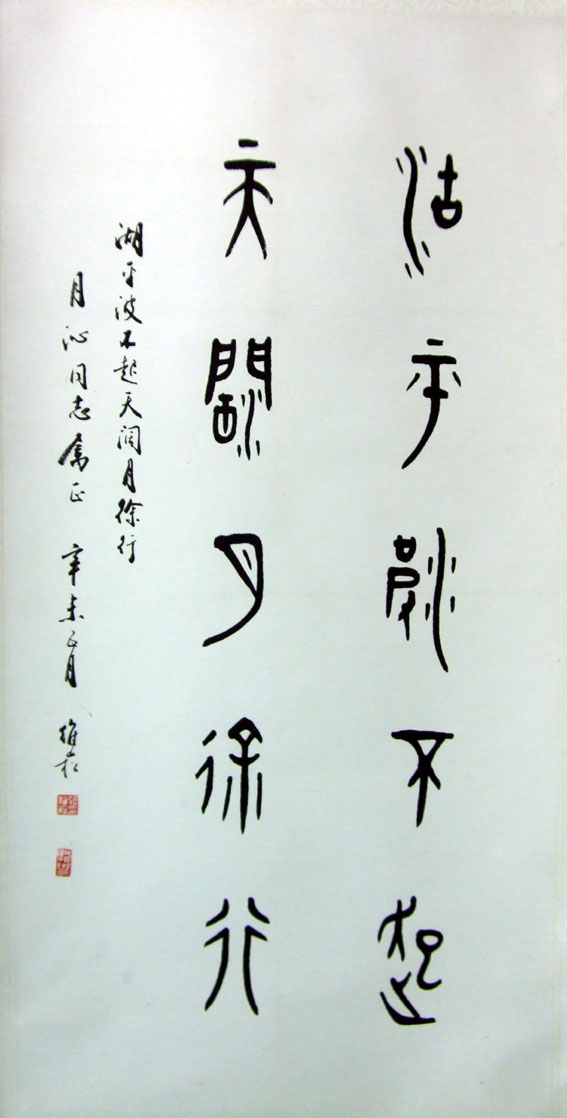 湖平波不起
天阔月徐行
湖平波不起天阔月徐行
月沁同志雋正 辛未正月 維崧